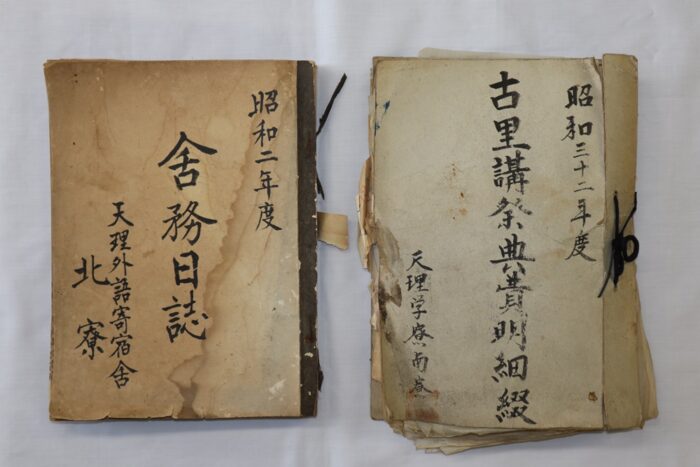 昭和二年度
舍務日誌
天理外語寄宿舍
北寮
昭和三十二年度
古里講祭典費明細綴
天理学寮南寮